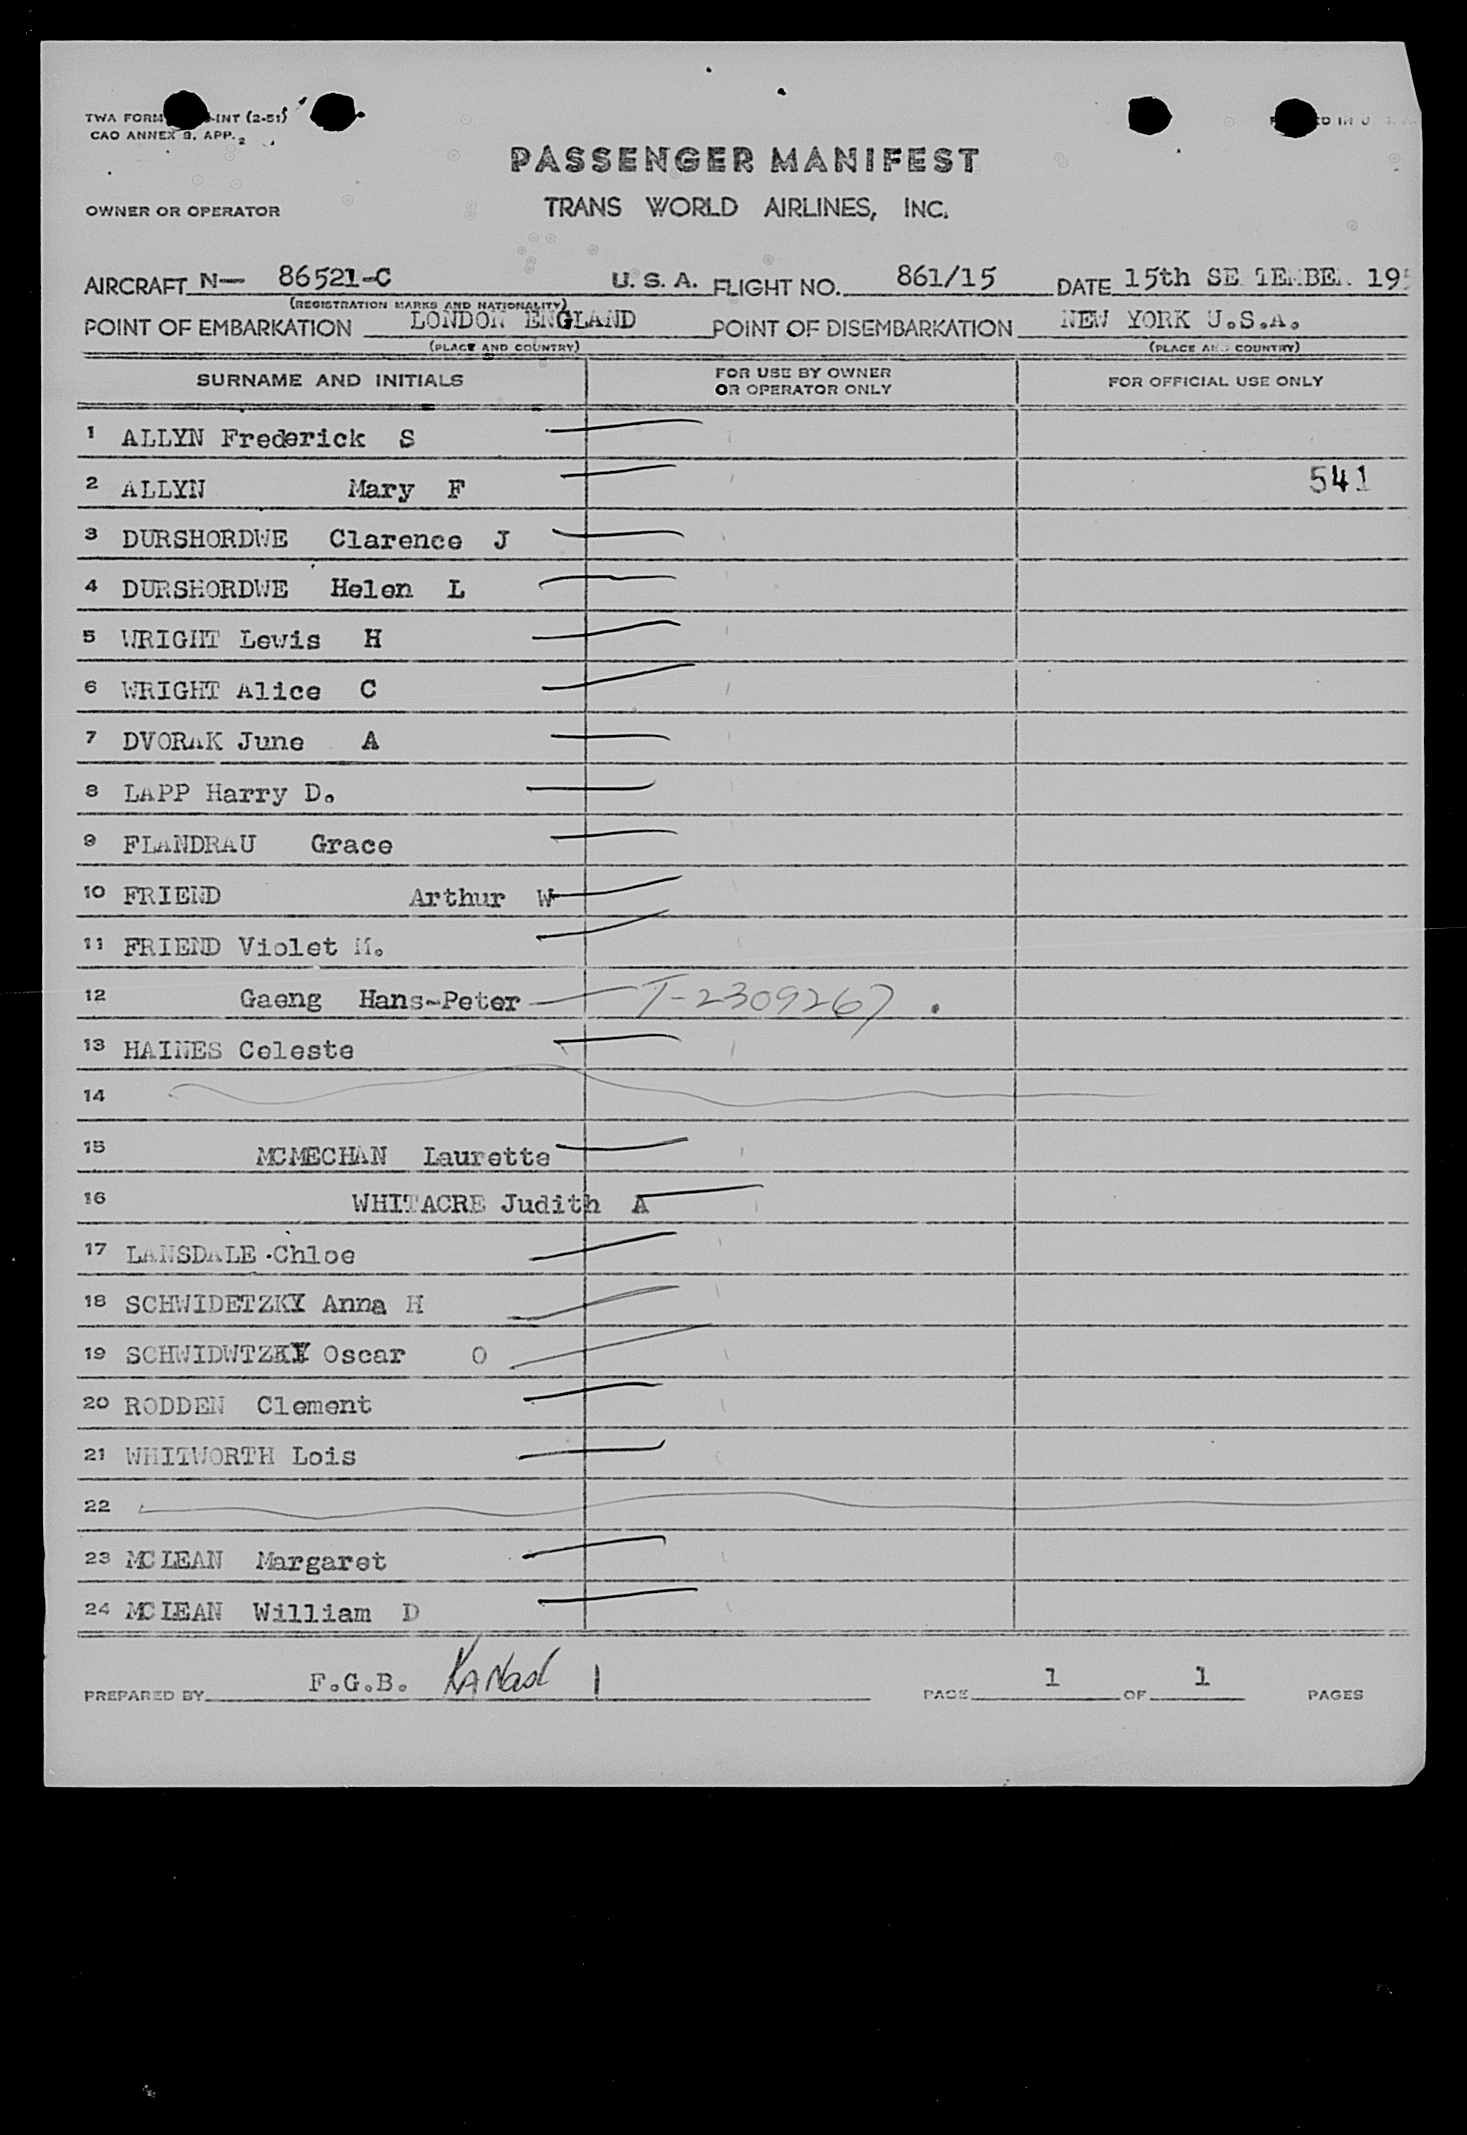 TWA FORM -INT (2-51)
CAO ANNEX 9. APP. 2
PASSENGER MANIFEST
OWNER OR OPERATOR TRANS WORLD AIRLINES, INC.
AIRCRAFT N— 86521-C U. S. A. FLIGHT NO. 861/15 DATE 15th
(REGISTRATION MARKS AND NATIONALITY)
POINT OF EMBARKATION LONDON ENGLAND POINT OF DISEMBARKATION NEW YORK U.S.A.
(PLACE AND COUNTRY) (PLACE AND COUNTRY)
SURNAME AND INITIALS FOR USE BY OWNER OR OPERATOR ONLY FOR OFFICIAL USE ONLY
1 ALLYN Frederick S
2 ALLYN Mary F 541
3 DURSHORDWE Clarence J
4 DURSHORDWE Helen L
5 WRIGHT Lewis H
6 WRIGHT Alice C
7 DVORAK June A
8 LAPP Harry D.
9 FLANDRAU Grace
10 FRIEND Arthur W
11 FRIEND Violet M.
12 Gaeng Hans-Peter T-2309267
13 HAINES Celeste
14
15 MCMECHAN Laurette
16 WHITACRE Judith A
17 LANSDALE Chloe
18 SCHWIDETZKY Anna H
19 SCHWIDWTZKY Oscar O
20 RODDEN Clement
21 WHITWORTH Lois
22
23 MCLEAN Margaret
24 MCLEAN William D
PREPARED BY F.G.B. PAGE 1 OF 1 PAGES